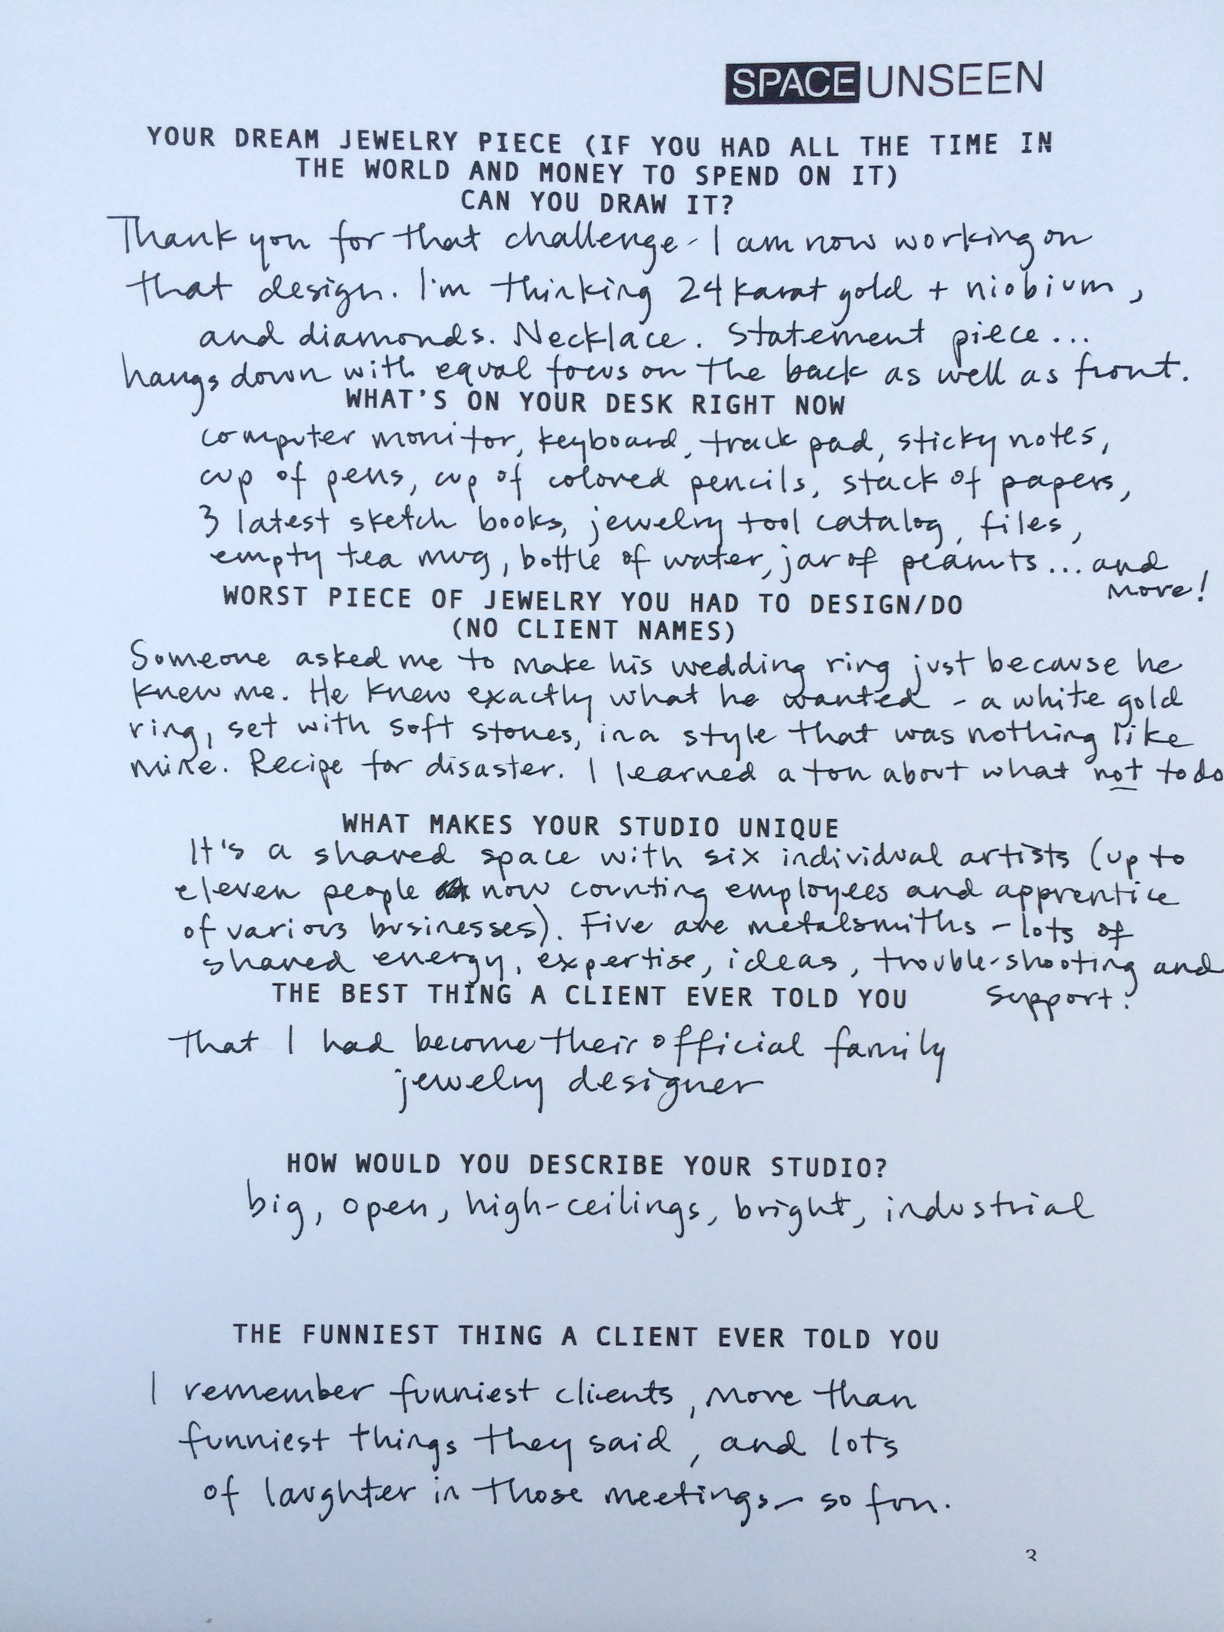 SPACE UNSEEN
YOUR DREAM JEWELRY PIECE (IF YOU HAD ALL THE TIME IN
THE WORLD AND MONEY TO SPEND ON IT)
CAN YOU DRAW IT?
Thank you for that challenge - I am now working on
that design. I'm thinking 24 karat gold + niobium,
and diamonds. Necklace. Statement piece...
hangs down with equal focus on the back as well as front.
WHAT'S ON YOUR DESK RIGHT NOW
computer monitor, keyboard, track pad, sticky notes,
cup of pens, cup of colored pencils, stack of papers,
3 latest sketch books, jewelry tool catalog, files,
empty tea mug, bottle of water, jar of peanuts... and
more!
WORST PIECE OF JEWELRY YOU HAD TO DESIGN/DO
(NO CLIENT NAMES)
Someone asked me to make his wedding ring just because he
knew me. He knew exactly what he wanted - a white gold
ring, set with soft stones, in a style that was nothing like
mine. Recipe for disaster. I learned a ton about what not to do
WHAT MAKES YOUR STUDIO UNIQUE
It's a shared space with six individual artists (up to
eleven people now counting employees and apprentice
of various businesses). Five are metalsmiths - lots of
shared energy, expertise, ideas, trouble-shooting and
support!
THE BEST THING A CLIENT EVER TOLD YOU
that I had become their official family
jewelry designer
HOW WOULD YOU DESCRIBE YOUR STUDIO?
big, open, high-ceilings, bright, industrial
THE FUNNIEST THING A CLIENT EVER TOLD YOU
I remember funniest clients, more than
funniest things they said, and lots
of laughter in those meetings - so fun.
3